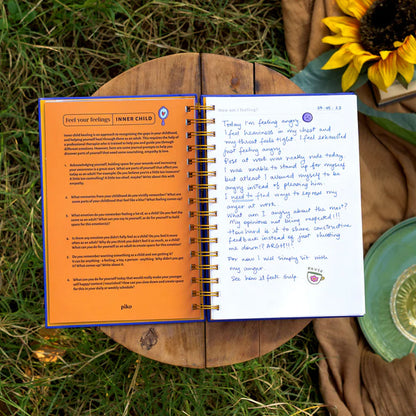 Feel your feelings | INNER CHILD
Inner child healing is an approach to recognising the gaps in your childhood,
and helping yourself heal through them as an adult. This requires the help of
a professional therapist who is trained to help you and guide you through
different emotions. Here are some journal prompts to help you
discover parts of yourself that need some nurturing, empathy &
1. Acknowledging yourself, holding space for your wounds and nurturing
your innocence is a great start. What are parts of yourself that affect you
today as an adult? For example: Do you believe you're a little too insecure?
A little too controlling? A little too aloof, maybe? Write about this with
empathy.
2. What memories from your childhood do you vividly remember? What are
some parts of your childhood that feel like a blur? What feeling comes up?
3. What emotion do you remember feeling a lot of, as a child? Do you feel the
same as an adult? What can you say to yourself or do for yourself to hold
space for this emotion(s)?
4. Is there any emotion you didn't fully feel as a child? Do you feel it more
often as an adult? Why do you think you didn't feel it as much, as a child?
What can you do as an adult to create more space for this emotion?
5. Do you remember wanting something as a child and not getting it?
It can be anything - a feeling, a toy, a person - anything. Why didn't you get
it? What comes up? Write about it.
6. What can you do for yourself today that would really make your younger
self happy/content / nourished? How can you slow down and create space
for this in your daily or weekly schedule?
piko
How am I feeling?
Today I'm feeling angry
I feel heaviness in my chest and
my throat feels tight. I feel exhausted
just feeling angry.
Boss at work was really rude today.
I was unable to stand up for myself
but atleast I allowed myself to be
angry instead of pleasing him.
I need to find ways to express my
anger at work.
What am I angry about the most?
My opinions not being respected!!!
How hard is it to share constructive
feedback instead of just shouting
me down!? ARGH!!!
For now I will simply sit with
my anger.
See how it feels. Gulp.
PAUSE